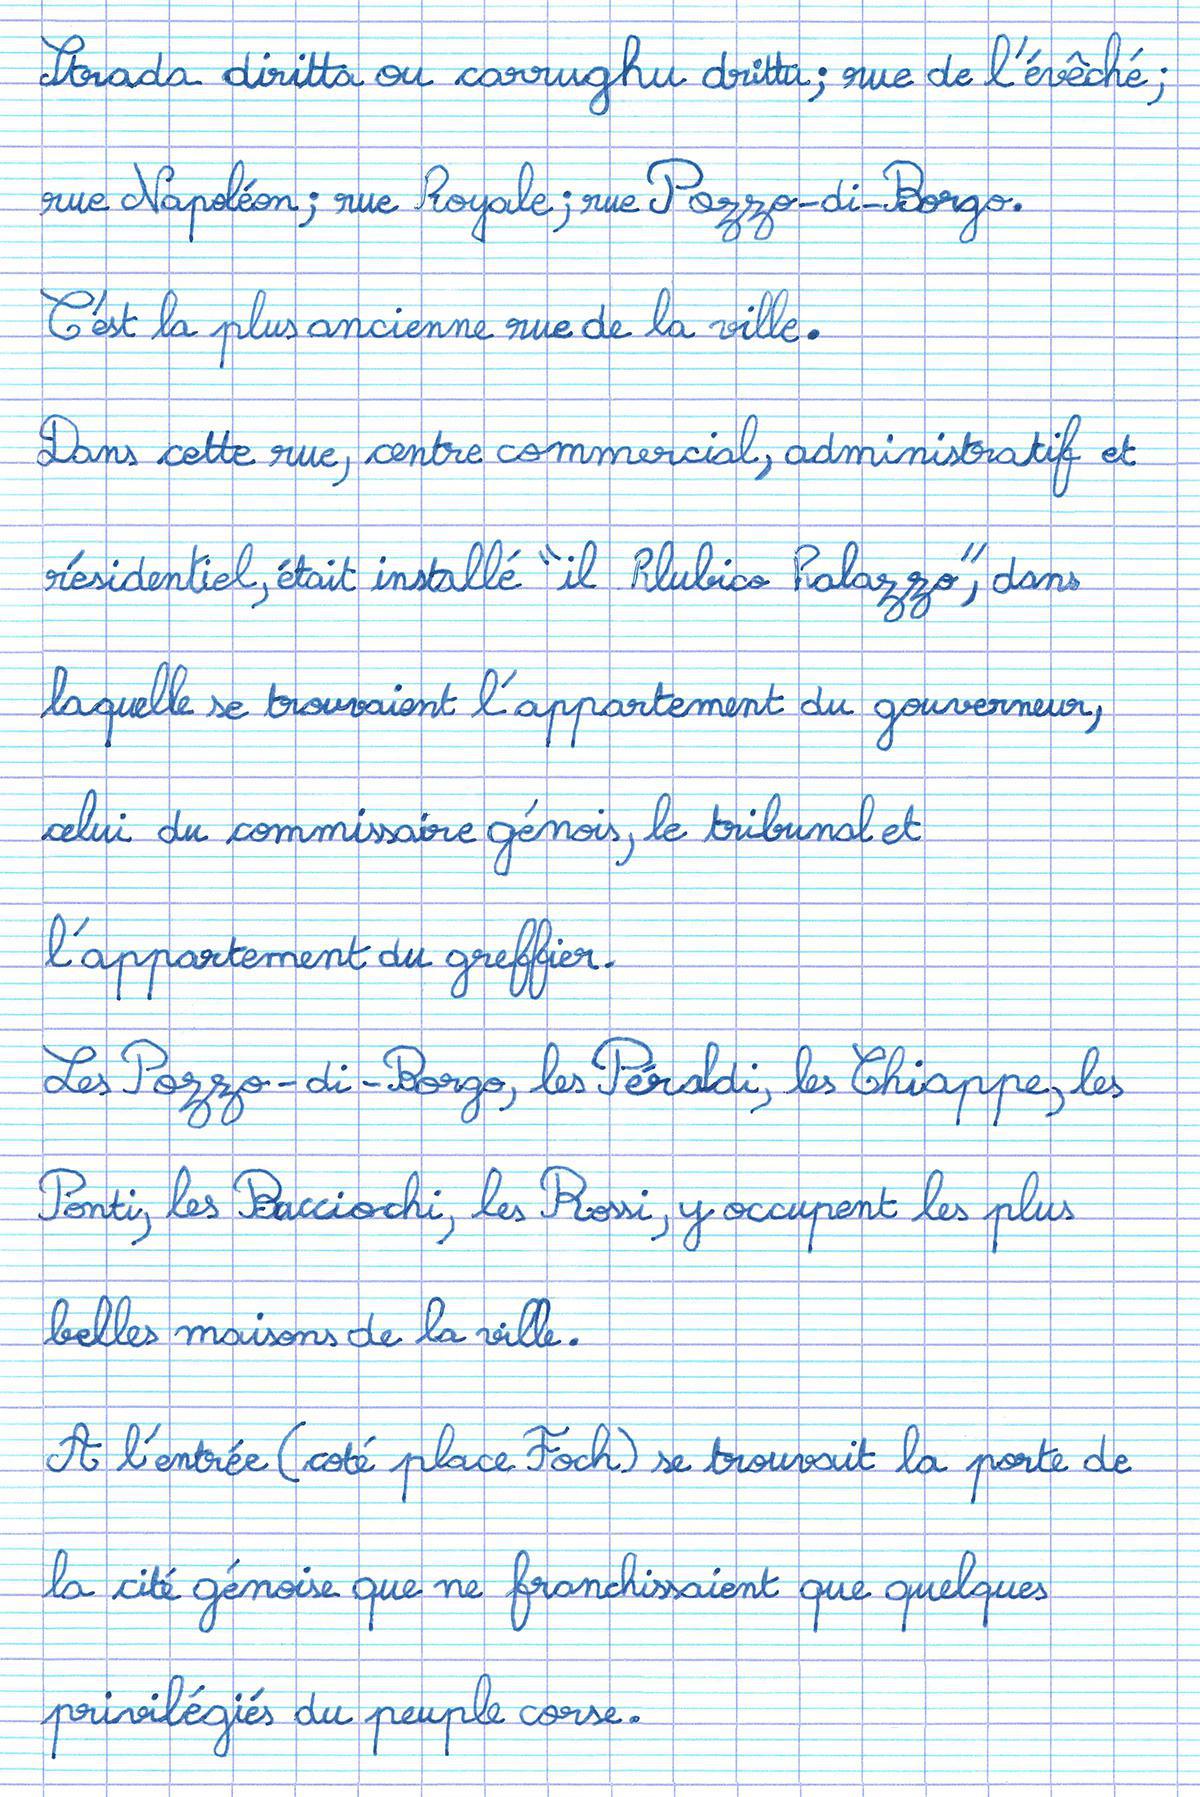 Strada diritta ou carrughu drittu; rue de l'évêché;
rue Napoléon; rue Royale; rue Pozzo-di-Borgo.
C'est la plus ancienne rue de la ville.
Dans cette rue, centre commercial, administratif et
résidentiel, était installé "il Rlubico Ralazzo", dans
laquelle se trouvaient l'appartement du gouverneur,
celui du commissaire génois, le tribunal et
l'appartement du greffier.
Les Pozzo-di-Borgo, les Péraldi, les Chiappe, les
Ponti, les Bacciochi, les Rossi, y occupent les plus
belles maisons de la ville.
A l'entrée (coté place Foch) se trouvait la porte de
la cité génoise que ne franchissaient que quelques
privilégiés du peuple corse.